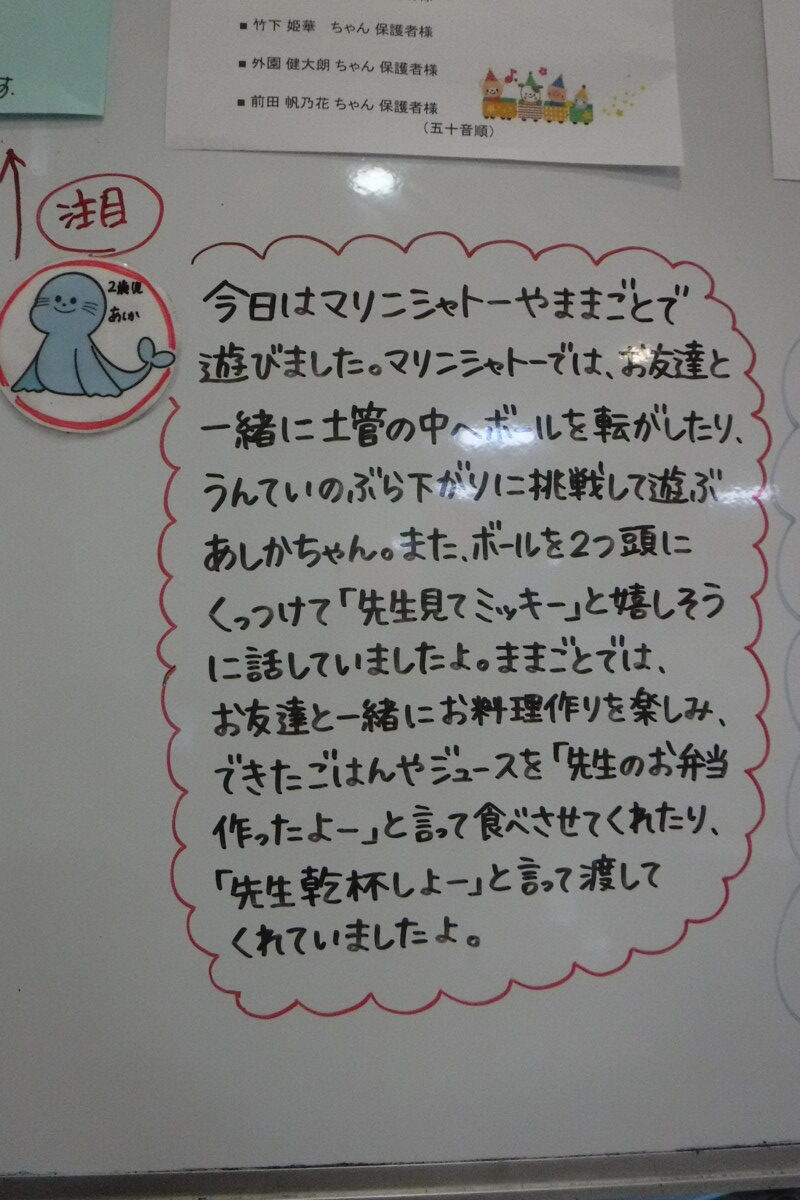 す.
■ 竹下 姫華 ちゃん 保護者様
■ 外園 健大朗 ちゃん 保護者様
■ 前田 帆乃花 ちゃん 保護者様
(五十音順)
注目
2歳児
あしか
今日はマリンシャトーやままごとで
遊びました。マリンシャトーでは、お友達と
一緒に土管の中へボールを転がしたり、
うんていのぶら下がりに挑戦して遊ぶ
あしかちゃん。また、ボールを2つ頭に
くっつけて「先生見てミッキー」と嬉しそう
に話していましたよ。ままごとでは、
お友達と一緒にお料理作りを楽しみ、
できたごはんやジュースを「先生のお弁当
作ったよー」と言って食べさせてくれたり、
「先生乾杯しよー」と言って渡して
くれていましたよ。